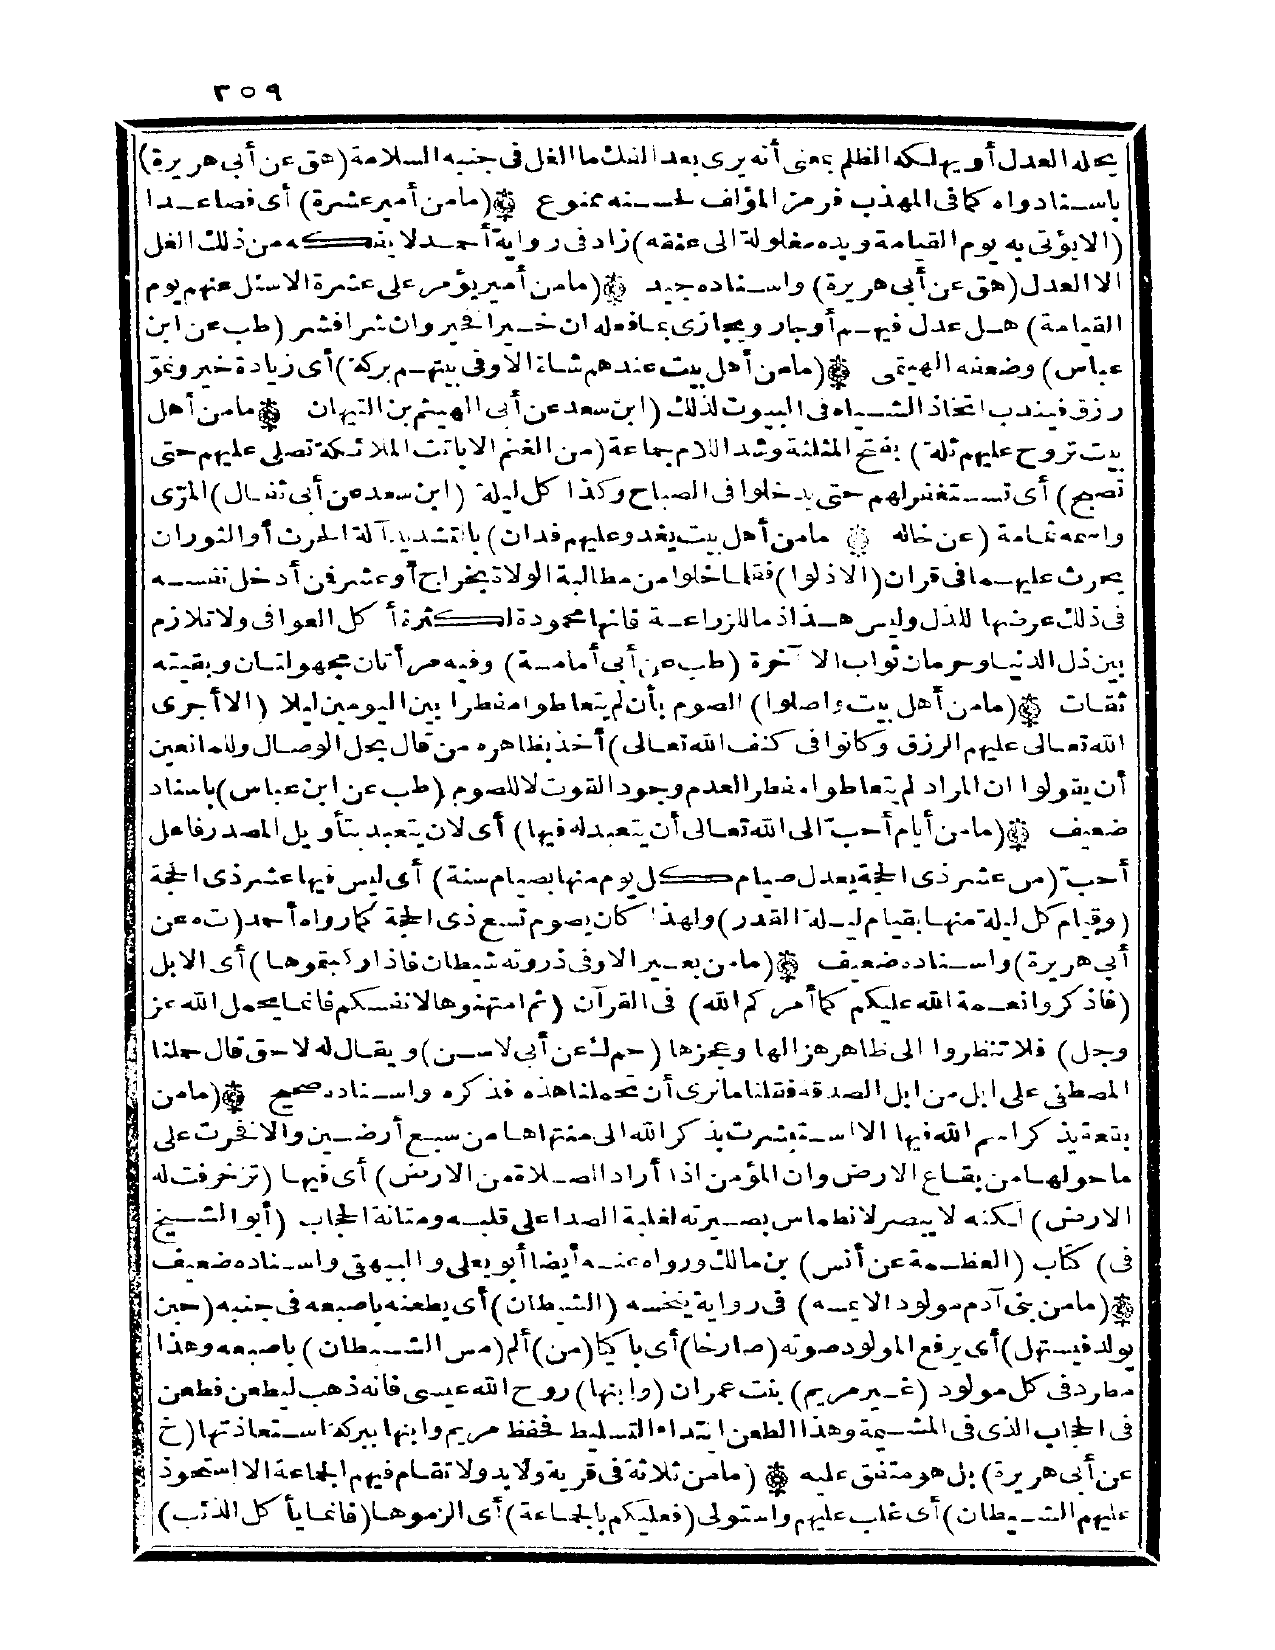 ٣٥٩
يحله العدل أو يهلكه الظلم بمعنى أنه يرى بعد الفك ما الغل فى جنبه السلامة (هق عن أبى هريرة)
باسناد واه كما فى المهذب فرمز المؤلف لحسنه ممنوع (ما من أمير عشرة) أى فصاعدا
(الا يؤتى به يوم القيامة ويده مغلولة الى عنقه) زاد فى رواية أحمد لا يفكه من ذلك الغل
الا العدل (هق عن أبى هريرة) واسناده جيد (ما من أمير يؤمر على عشرة الا سئل عنهم يوم
القيامة) هل عدل فيهم أو جار ويجازى بما فعله ان خيرا فخير وان شرا فشر (طب عن ابن
عباس) وضعفه الهيتمى (ما من أهل بيت عندهم شاة الا وفى بيتهم بركة) أى زيادة خير ونمو
رزق فيندب اتخاذ الشياه فى البيوت لذلك (ابن سعد عن أبى الهيثم بن التيهان ما من أهل
بيت تروح عليهم ثلة) بفتح المثلثة وشد اللام جماعة (من الغنم الا باتت الملائكة تصلى عليهم حتى
تصبح) أى تستغفر لهم حتى يدخلوا فى الصباح وكذا كل ليلة (ابن سعد عن أبى ثفال) المرّى
واسمه ثمامة (عن خاله ما من أهل بيت يغدو عليهم فدان) بالتشديد آلة الحرث أو الثوران
يحرث عليهما فى قران (الا ذلوا) فقلما خلوا من مطالبة الولاة بخراج أو عشر فمن أدخل نفسه
فى ذلك عرضها للذل وليس هذا ذما للزراعة فانها محمودة لكثرة أكل العوافى ولا تلازم
بين ذل الدنيا وحرمان ثواب الآخرة (طب عن أبى أمامة) وفيه امرأتان مجهولتان وبقيته
ثقات (ما من أهل بيت واصلوا) الصوم بأن لم يتعاطوا مفطرا بين اليومين ليلا (الا أجرى
الله تعالى عليهم الرزق وكانوا فى كنف الله تعالى) أخذ بظاهره من قال بحل الوصال وللمانعين
أن يقولوا ان المراد لم يتعاطوا مفطرا لعدم وجود القوت لا للصوم (طب عن ابن عباس) باسناد
ضعيف (ما من أيام أحبّ الى الله تعالى أن يتعبد له فيها) أى لان يتعبد بتأويل المصدر فاعل
أحبّ (من عشر ذى الحجة يعدل صيام كل يوم منها بصيام سنة) أى ليس فيها عشر ذى الحجة
(وقيام كل ليلة منها بقيام ليلة القدر) ولهذا كان يصوم تسع ذى الحجة كما رواه أحمد (ت ه عن
أبى هريرة) واسناده ضعيف (ما من بعير الا وفى ذروته شيطان فاذا ركبتموها) أى الابل
(فاذكروا نعمة الله عليكم كما أمركم الله) فى القرآن (ثم امتهنوها لانفسكم فانما يحمل الله عز
وجل) فلا تنظروا الى ظاهر هزالها وعجزها (حم ك عن أبى لاس) ويقال له لاحق قال حملنا
المصطفى على ابل من ابل الصدقة فقلنا ما نرى أن تحملنا هذه فذكره واسناده صحيح (ما من
بقعة يذكر اسم الله فيها الا استبشرت بذكر الله الى منتهاها من سبع أرضين والا فخرت على
ما حولها من بقاع الارض وان المؤمن اذا أراد الصلاة من الارض) أى فيها (تزخرفت له
الارض) لكنه لا يبصر لانطماس بصيرته لغلبة الصدا على قلبه ومتانة الحجاب (أبو الشيخ
فى) كتاب (العظمة عن أنس) بن مالك ورواه عنه أيضا أبو يعلى والبيهقى واسناده ضعيف
(ما من بنى آدم مولود الا يمسه) فى رواية ينخسه (الشيطان) أى يطعنه باصبعه فى جنبه (حين
يولد فيستهل) أى يرفع المولود صوته (صارخا) أى باكيا (من) ألم (مس الشيطان) باصبعه وهذا
مطرد فى كل مولود (غير مريم) بنت عمران (وابنها) روح الله عيسى فانه ذهب ليطعن فطعن
فى الحجاب الذى فى المشيمة وهذا الطعن ابتداء التسليط فحفظ مريم وابنها ببركة استعاذتها (خ
عن أبى هريرة) بل هو متفق عليه (ما من ثلاثة فى قرية ولا بدو لا تقام فيهم الجماعة الا استحوذ
عليهم الشيطان) أى غلب عليهم واستولى (فعليكم بالجماعة) أى الزموها (فانما يأكل الذئب)